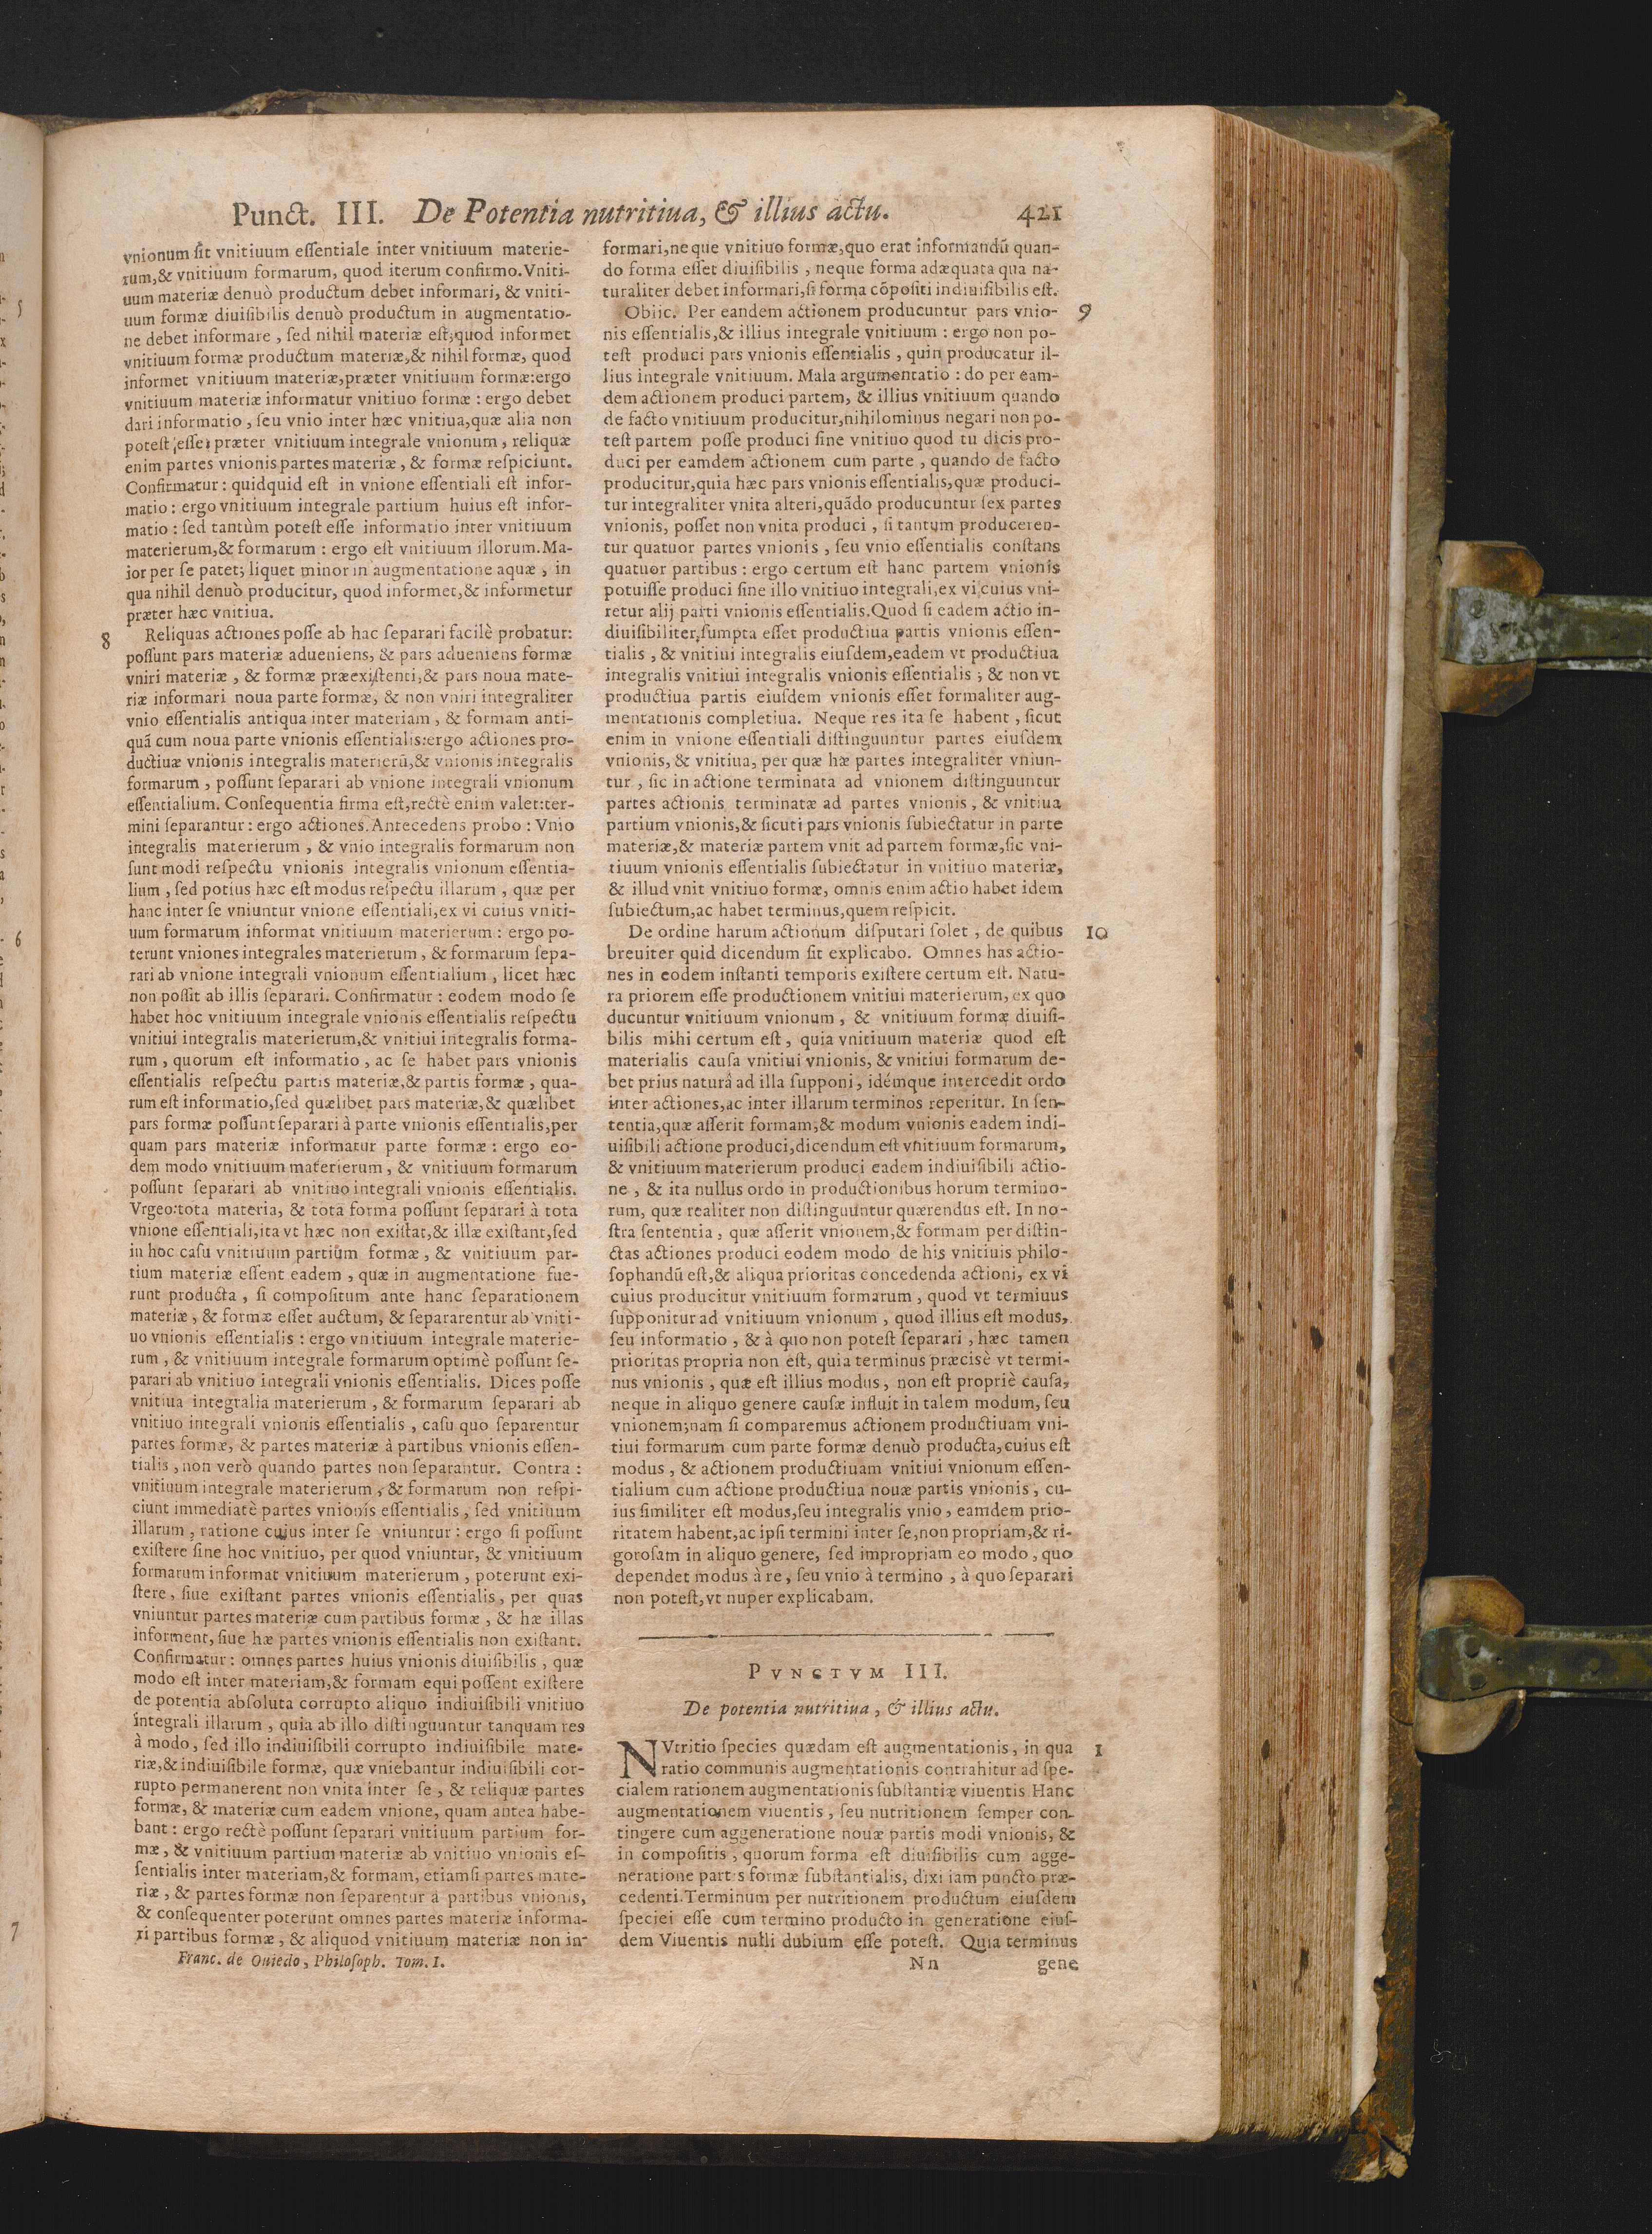 Punct. III. De Potentia nutritiua, & illius actu. 421
vnionum sit vnitiuum essentiale inter vnitiuum materie-
rum,& vnitiuum formarum, quod iterum confirmo. Vniti-
uum materiæ denuò productum debet informari, & vniti-
uum formæ diuisibilis denuò productum in augmentatio-
ne debet informare, sed nihil materiæ est, quod informet
vnitiuum formæ productum materiæ,& nihil formæ, quod
informet vnitiuum materiæ,præter vnitiuum formæ:ergo
vnitiuum materiæ informatur vnitiuo formæ : ergo debet
dari informatio, seu vnio inter hæc vnitiua,quæ alia non
potest esse præter vnitiuum integrale vnionum, reliquæ
enim partes vnionis partes materiæ, & formæ respiciunt.
Confirmatur : quidquid est in vnione essentiali est infor-
matio : ergo vnitiuum integrale partium huius est infor-
matio : sed tantùm potest esse informatio inter vnitiuum
materierum,& formarum : ergo est vnitiuum illorum. Ma-
ior per se patet; liquet minor in augmentatione aquæ, in
qua nihil denuò producitur, quod informet,& informetur
præter hæc vnitiua.
8 Reliquas actiones posse ab hac separari facilè probatur:
possunt pars materiæ adueniens, & pars adueniens formæ
vniri materiæ, & formæ præexistenti,& pars noua mate-
riæ informari noua parte formæ, & non vniri integraliter
vnio essentialis antiqua inter materiam, & formam anti-
quã cum noua parte vnionis essentialis:ergo actiones pro-
ductiuæ vnionis integralis materierũ,& vnionis integralis
formarum, possunt separari ab vnione integrali vnionum
essentialium. Consequentia firma est,rectè enim valet:ter-
mini separantur : ergo actiones. Antecedens probo : Vnio
integralis materierum, & vnio integralis formarum non
sunt modi respectu vnionis integralis vnionum essentia-
lium, sed potius hæc est modus respectu illarum, quæ per
hanc inter se vniuntur vnione essentiali,ex vi cuius vniti-
uum formarum informat vnitiuum materierum : ergo po-
terunt vniones integrales materierum, & formarum sepa-
rari ab vnione integrali vnionum essentialium, licet hæc
non possit ab illis separari. Confirmatur : eodem modo se
habet hoc vnitiuum integrale vnionis essentialis respectu
vnitiui integralis materierum,& vnitiui integralis forma-
rum, quorum est informatio, ac se habet pars vnionis
essentialis respectu partis materiæ,& partis formæ, qua-
rum est informatio,sed quælibet pars materiæ,& quælibet
pars formæ possunt separari à parte vnionis essentialis,per
quam pars materiæ informatur parte formæ : ergo eo-
dem modo vnitiuum materierum, & vnitiuum formarum
possunt separari ab vnitiuo integrali vnionis essentialis.
Vrgeo:tota materia, & tota forma possunt separari à tota
vnione essentiali,ita vt hæc non existat,& illæ existant,sed
in hoc casu vnitiuum partiũm formæ, & vnitiuum par-
tium materiæ essent eadem, quæ in augmentatione fue-
runt producta, si compositum ante hanc separationem
materiæ, & formæ esset auctum, & separarentur ab vniti-
uo vnionis essentialis : ergo vnitiuum integrale materie-
rum, & vnitiuum integrale formarum optimè possunt se-
parari ab vnitiuo integrali vnionis essentialis. Dices posse
vnitiua integralia materierum, & formarum separari ab
vnitiuo integrali vnionis essentialis, casu quo separentur
partes formæ, & partes materiæ à partibus vnionis essen-
tialis, non verò quando partes non separantur. Contra :
vnitiuum integrale materierum, & formarum non respi-
ciunt immediatè partes vnionis essentialis, sed vnitiuum
illarum, ratione cuius inter se vniuntur : ergo si possunt
existere sine hoc vnitiuo, per quod vniuntur, & vnitiuum
formarum informat vnitiuum materierum, poterunt exi-
stere, siue existant partes vnionis essentialis, per quas
vniuntur partes materiæ cum partibus formæ, & hæ illas
informent, siue hæ partes vnionis essentialis non existant.
Confirmatur : omnes partes huius vnionis diuisibilis, quæ
modo est inter materiam,& formam equi possent existere
de potentia absoluta corrupto aliquo indiuisibili vnitiuo
integrali illarum, quia ab illo distinguuntur tanquam res
à modo, sed illo indiuisibili corrupto indiuisibile mate-
riæ,& indiuisibile formæ, quæ vniebantur indiuisibili cor-
rupto permanerent non vnita inter se, & reliquæ partes
formæ, & materiæ cum eadem vnione, quam antea habe-
bant : ergo rectè possunt separari vnitiuum partium for-
mæ, & vnitiuum partium materiæ ab vnitiuo vnionis es-
sentialis inter materiam,& formam, etiamsi partes mate-
riæ, & partes formæ non separentur à partibus vnionis,
& consequenter poterunt omnes partes materiæ informa-
ri partibus formæ, & aliquod vnitiuum materiæ non in-
Franc. de Ouiedo, Philosoph. Tom. I.
formari,neque vnitiuo formæ,quo erat informandũ quan-
do forma esset diuisibilis, neque forma adæquata qua na-
turaliter debet informari,si forma cõpositi indiuisibilis est.
Obiic. Per eandem actionem producuntur pars vnio- 9
nis essentialis,& illius integrale vnitiuum : ergo non po-
test produci pars vnionis essentialis, quin producatur il-
lius integrale vnitiuum. Mala argumentatio : do per eam-
dem actionem produci partem, & illius vnitiuum quando
de facto vnitiuum producitur,nihilominus negari non po-
test partem posse produci sine vnitiuo quod tu dicis pro-
duci per eamdem actionem cum parte, quando de facto
producitur,quia hæc pars vnionis essentialis,quæ produci-
tur integraliter vnita alteri,quãdo producuntur sex partes
vnionis, posset non vnita produci, si tantum produceren-
tur quatuor partes vnionis, seu vnio essentialis constans
quatuor partibus : ergo certum est hanc partem vnionis
potuisse produci sine illo vnitiuo integrali,ex vi cuius vni-
retur alij parti vnionis essentialis.Quod si eadem actio in-
diuisibiliter sumpta esset productiua partis vnionis essen-
tialis, & vnitiui integralis eiusdem,eadem vt productiua
integralis vnitiui integralis vnionis essentialis ; & non vt
productiua partis eiusdem vnionis esset formaliter aug-
mentationis completiua. Neque res ita se habent, sicut
enim in vnione essentiali distinguuntur partes eiusdem
vnionis, & vnitiua, per quæ hæ partes integraliter vniun-
tur, sic in actione terminata ad vnionem distinguuntur
partes actionis terminatæ ad partes vnionis, & vnitiua
partium vnionis,& sicuti pars vnionis subiectatur in parte
materiæ,& materiæ partem vnit ad partem formæ,sic vni-
tiuum vnionis essentialis subiectatur in vnitiuo materiæ,
& illud vnit vnitiuo formæ, omnis enim actio habet idem
subiectum,ac habet terminus,quem respicit.
De ordine harum actionum disputari solet, de quibus 10
breuiter quid dicendum sit explicabo. Omnes has actio-
nes in eodem instanti temporis existere certum est. Natu-
ra priorem esse productionem vnitiui materierum, ex quo
ducuntur vnitiuum vnionum, & vnitiuum formæ diuisi-
bilis mihi certum est, quia vnitiuum materiæ quod est
materialis causa vnitiui vnionis, & vnitiui formarum de-
bet prius naturâ ad illa supponi, idémque intercedit ordo
inter actiones,ac inter illarum terminos reperitur. In sen-
tentia,quæ asserit formam,& modum vnionis eadem indi-
uisibili actione produci,dicendum est vnitiuum formarum,
& vnitiuum materierum produci eadem indiuisibili actio-
ne, & ita nullus ordo in productionibus horum termino-
rum, quæ realiter non distinguuntur quærendus est. In no-
stra sententia, quæ asserit vnionem,& formam per distin-
ctas actiones produci eodem modo de his vnitiuis philo-
sophandũ est,& aliqua prioritas concedenda actioni, ex vi
cuius producitur vnitiuum formarum, quod vt terminus
supponitur ad vnitiuum vnionum, quod illius est modus,
seu informatio, & à quo non potest separari, hæc tamen
prioritas propria non est, quia terminus præcisè vt termi-
nus vnionis, quæ est illius modus, non est propriè causa,
neque in aliquo genere causæ influit in talem modum, seu
vnionem;nam si comparemus actionem productiuam vni-
tiui formarum cum parte formæ denuò producta,cuius est
modus, & actionem productiuam vnitiui vnionum essen-
tialium cum actione productiua nouæ partis vnionis, cu-
ius similiter est modus,seu integralis vnio, eamdem prio-
ritatem habent,ac ipsi termini inter se,non propriam,& ri-
gorosam in aliquo genere, sed impropriam eo modo, quo
dependet modus à re, seu vnio à termino, à quo separari
non potest,vt nuper explicabam.
PVNCTVM III.
De potentia nutritiua, & illius actu.
NVtritio species quædam est augmentationis, in qua 1
ratio communis augmentationis contrahitur ad spe-
cialem rationem augmentationis substantiæ viuentis. Hanc
augmentationem viuentis, seu nutritionem semper con-
tingere cum aggeneratione nouæ partis modi vnionis, &
in compositis, quorum forma est diuisibilis cum agge-
neratione partis formæ substantialis, dixi iam puncto præ-
cedenti.Terminum per nutritionem productum eiusdem
speciei esse cum termino producto in generatione eius-
dem Viuentis nulli dubium esse potest. Quia terminus
Nn gene
5
6
7